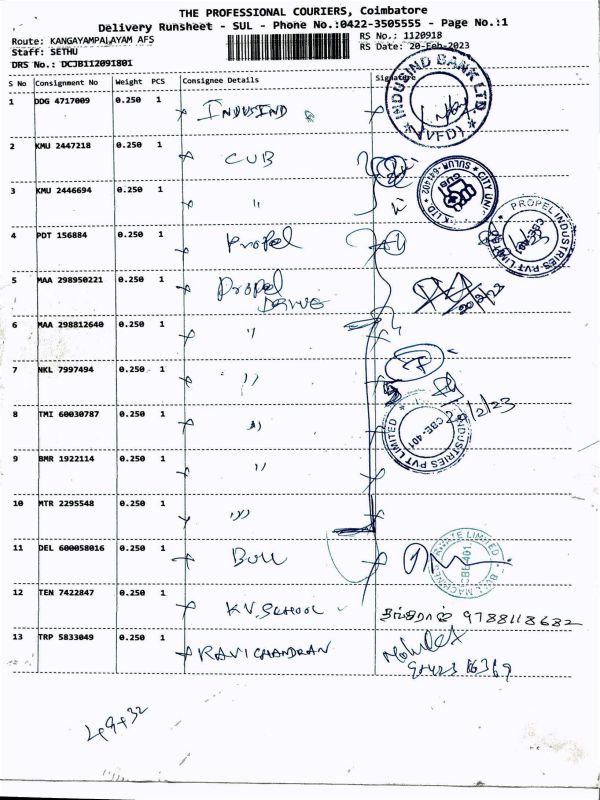 THE PROFESSIONAL COURIERS, Coimbatore
Delivery Runsheet - SUL - Phone No.:0422-3505555 - Page No.:1
Route: KANGAYAMPALAYAM AFS
RS No.: 1120918
Staff: SETHU
RS Date: 20-Feb-2023
DRS No.: DCJB112091801
S No Consignment No Weight PCS Consignee Details Signature
1 DDG 4717009 0.250 1 INDUSIND
INDUSIND BANK LTD.
(VFD)
2 KMU 2447218 0.250 1 CUB
CITY UNI
SULUR-641402
K LTD
CUB
3 KMU 2446694 0.250 1 "
4 PDT 156884 0.250 1 Propel
PROPEL INDUSTRIES PVT LIMITED
5 MAA 298950221 0.250 1 Propel
6 MAA 298812640 0.250 1 "
7 NKL 7997494 0.250 1 "
8 TMI 60030787 0.250 1 "
INDUSTRIES PVT LIMITED
CBE-401
9 BMR 1922114 0.250 1 "
10 MTR 2295548 0.250 1 "
11 DEL 600058016 0.250 1 BULL
BULL MACHINES PRIVATE LIMITED
CBE-401
12 TEN 7422847 0.250 1 K.V. SCHOOL
9788118682
13 TRP 5833049 0.250 1 RAVICHANDRAN
49+32